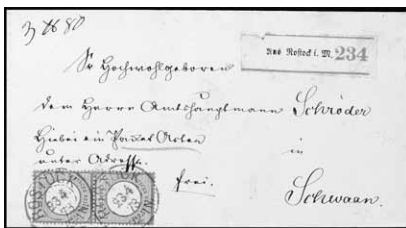 Aus Rostock i. M. 234
Sr Hochwohlgeboren
dem Herrn Amtshauptmann Schröder
Hiebei ein Packet Acten
in
unter Adresse.
frei.
Schwaan.
ROSTOCK
23 4
73